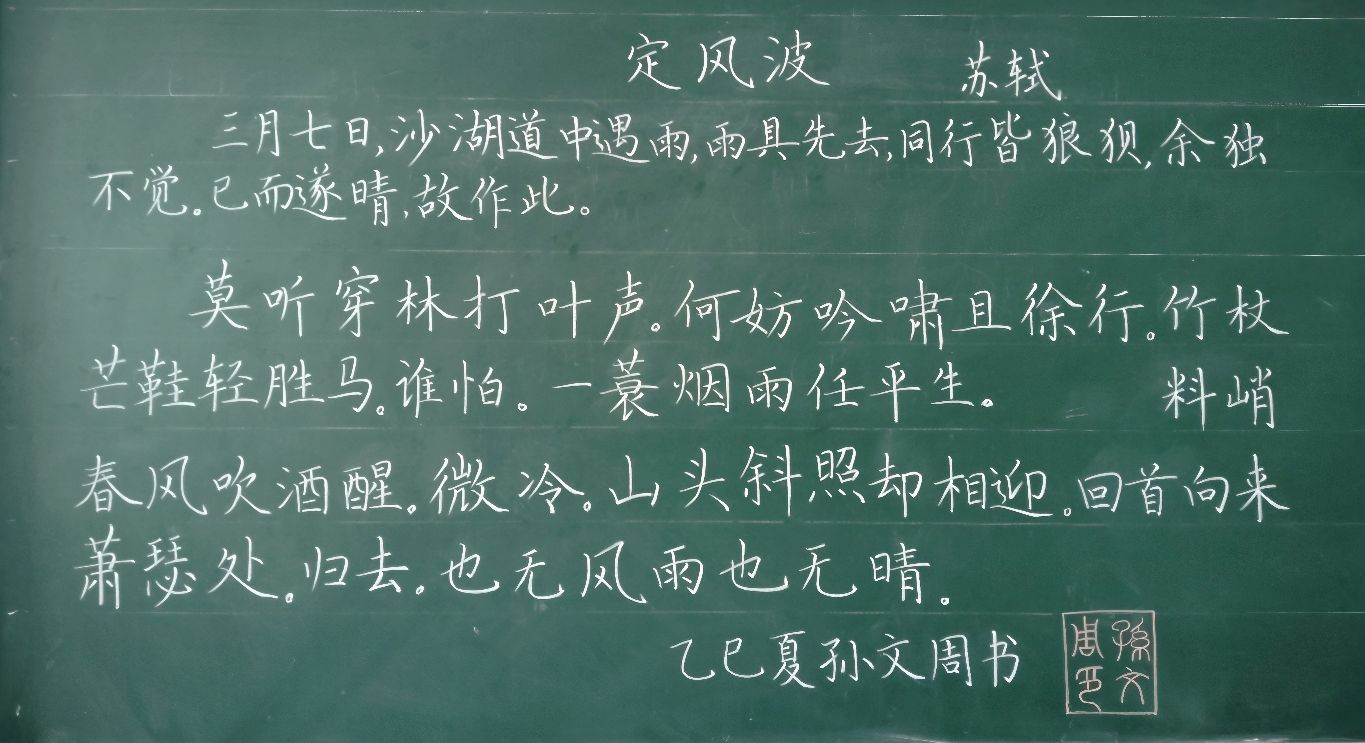 定风波 苏轼
三月七日,沙湖道中遇雨,雨具先去,同行皆狼狈,余独
不觉。已而遂晴,故作此。
莫听穿林打叶声。何妨吟啸且徐行。竹杖
芒鞋轻胜马。谁怕。一蓑烟雨任平生。 料峭
春风吹酒醒。微冷。山头斜照却相迎。回首向来
萧瑟处。归去。也无风雨也无晴。
乙巳夏孙文周书
孫文
周印